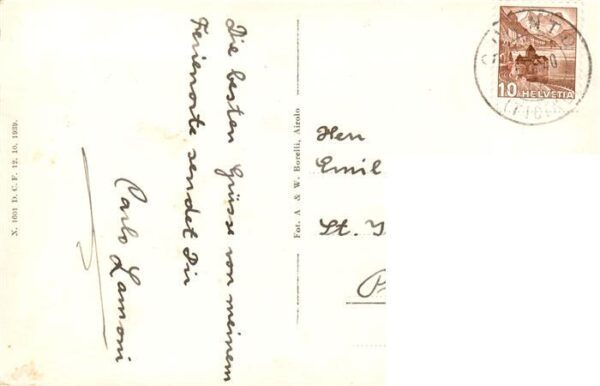 Die besten Grüsse von meinem
Ferienorte sendet Dir
Carlo Lamoni
N. 1601 D. C. F. 12. 10. 1939.
Fot. A & W. Borelli, Airolo
Herr
Emil
St.
10 HELVETIA